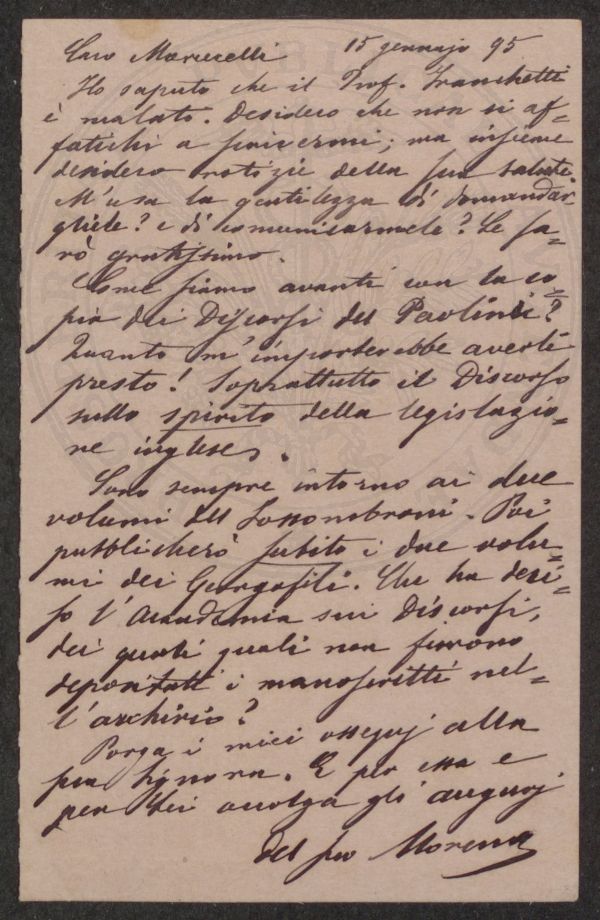 Caro Marucelli 15 gennajo 95
Ho saputo che il Prof. Franchetti
è malato. Desidero che non si af=
fatichi a scrivermi; ma insieme
desidero notizie della sua salute.
M'usa la gentilezza di domandar
gliele? e di comunicarmele? Le sa=
rò gratissimo.
Come siamo avanti con la co
pia dei Discorsi del Paolini?
Quanto m'importerebbe averli
presto! Soprattutto il Discorso
sullo spirito della legislazio=
ne inglese.
Sono sempre intorno ai due
volumi del Fossombroni. Poi
pubblicherò subito i due volu=
mi dei Georgofili. Che ha deci=
so l'Accademia sui Discorsi,
dei quali non furono
depositati i manoscritti nel=
l'archivio?
Porga i miei ossequj alla
sua Signora. E per essa e
per Lei accolga gli augurj
del suo Morena